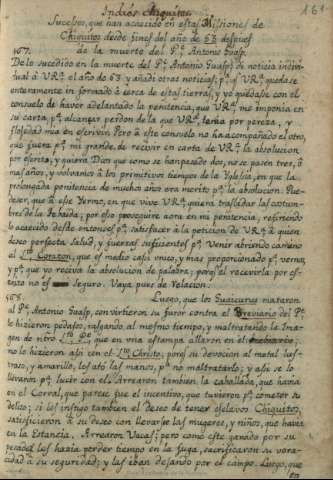 Indios Chiquitos.
161
Sucesos, que han acaescido en estas Missiones de
Chiquitos desde fines del año de 63 despues
de la muerte del Pe. Antonio Guasp.
De lo sucedido en la muerte del Pe. Antonio Guasp di noticia indivi-
dual à VRa. el año de 63 y añadi otras noticias; pa. q VRa. quedase
enteramente informado à cerca de estas tierras, y yo quedase con el
consuelo de haver adelantado la penitencia, que VRa. me imponia en
su carta, pa. alcanzar perdon de la que VRa. tenia por pereza, y
flogedad mia en escrivir. Pero à este consuelo no ha acompañado el otro,
que fuera pa. mi grande, de recivir en carta de VRa. la absolucion
por escrito; y quiera Dios que como se han pasado dos, no se pasen tres, ò
mas años, y volvamos à los primitivos tiempos de la Yglesia, en que la
prolongada penitencia de muchos años era merito pa. la absolucion. Pue-
de ser, que à este Yermo, en que vivo VRa. quiera trasladar las costum-
bres de la Tebaida; por eso proseguirè aora en mi penitencia, refiriendo
lo acaecido desde entonces pa. satisfacer à la peticion de VRa. à quien
deseo perfecta salud, y fuerzas suficientes pa. venir abriendo camino
el Smo. Corazon, que es medio casi unico, y mas proporcionado pa. vernos,
y pa. que yo reciva la absolucion de palabra; porq el recivirla por es-
crito no es seguro. Vaya pues de Relacion.
468. Luego, que los Guaicurus mataron
al Pe. Antonio Guasp, convirtieron su furor contra el Breviario del Pe.
le hizieron pedazos, rasgando al mesmo tiempo, y maltratando la Ima-
gen de ntro que en una estampa allaron en el
no lo hizieron asi con el Smo. Christo, porq su devocion al metal lus-
troso, y amarillo, les atò las manos, pa. no maltratarlo; y asi se lo
llevaron pa. lucir con el. Arrearon tambien la caballada, que havia
en el Corral, que parece fue el incentivo, que tuvieron pa. cometer su
delito; si les instigo tambien el deseo de tener esclavos Chiquitos,
satisficieron à su deseo con llevarse las mugeres, y niños, que havia
en la Estancia. Arrearon Vacas; pero como este ganado por su
pesadez les hazia perder tiempo en la fuga, sacrificaron su vora-
cidad à su seguridad; y las iban dejando por el campo. Luego, que